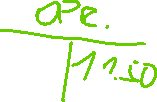 ope.
11.50